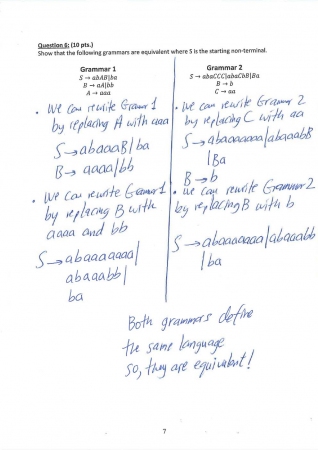 Question 6: (10 pts.)
Show that the following grammars are equivalent where S is the starting non-terminal.
Grammar 1
S → abAB|ba
B → aA|bb
A → aaa
• We can rewrite Gramar 1
by replacing A with aaa
S → abaaaB | ba
B → aaaa|bb
• We can rewrite Gramar 1
by replacing B with
aaaa and bb
S → abaaaaaaa|
abaaabb|
ba
Grammar 2
S → abaCCC|abaCbB|Ba
B → b
C → aa
• We can rewrite Grammar 2
by replacing C with aa
S → abaaaaaaa|abaaabB
|Ba
B → b
• We can rewrite Grammar 2
by replacing B with b
S → abaaaaaaa|abaaabb
|ba
Both grammars define
the same language
so, they are equivalent!
7